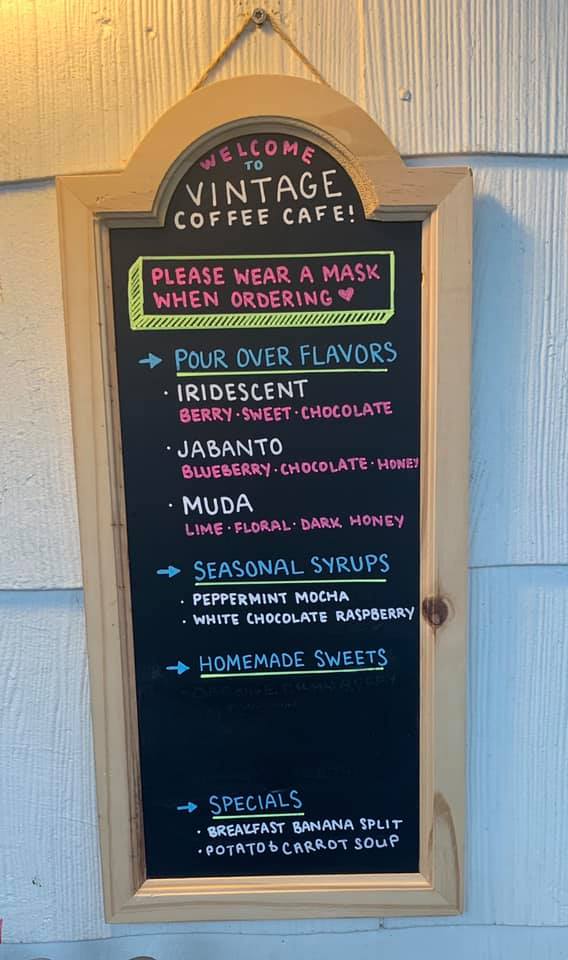 WELCOME
TO
VINTAGE
COFFEE CAFE!
PLEASE WEAR A MASK
WHEN ORDERING
POUR OVER FLAVORS
· IRIDESCENT
BERRY · SWEET · CHOCOLATE
· JABANTO
BLUEBERRY · CHOCOLATE · HONEY
· MUDA
LIME · FLORAL · DARK HONEY
SEASONAL SYRUPS
· PEPPERMINT MOCHA
· WHITE CHOCOLATE RASPBERRY
HOMEMADE SWEETS
SPECIALS
· BREAKFAST BANANA SPLIT
· POTATO & CARROT SOUP